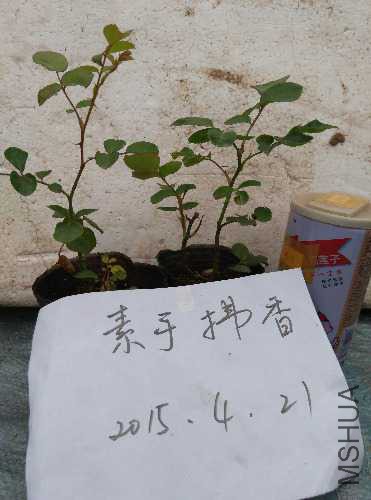 素手拂香
2015.4.21
MSHUA